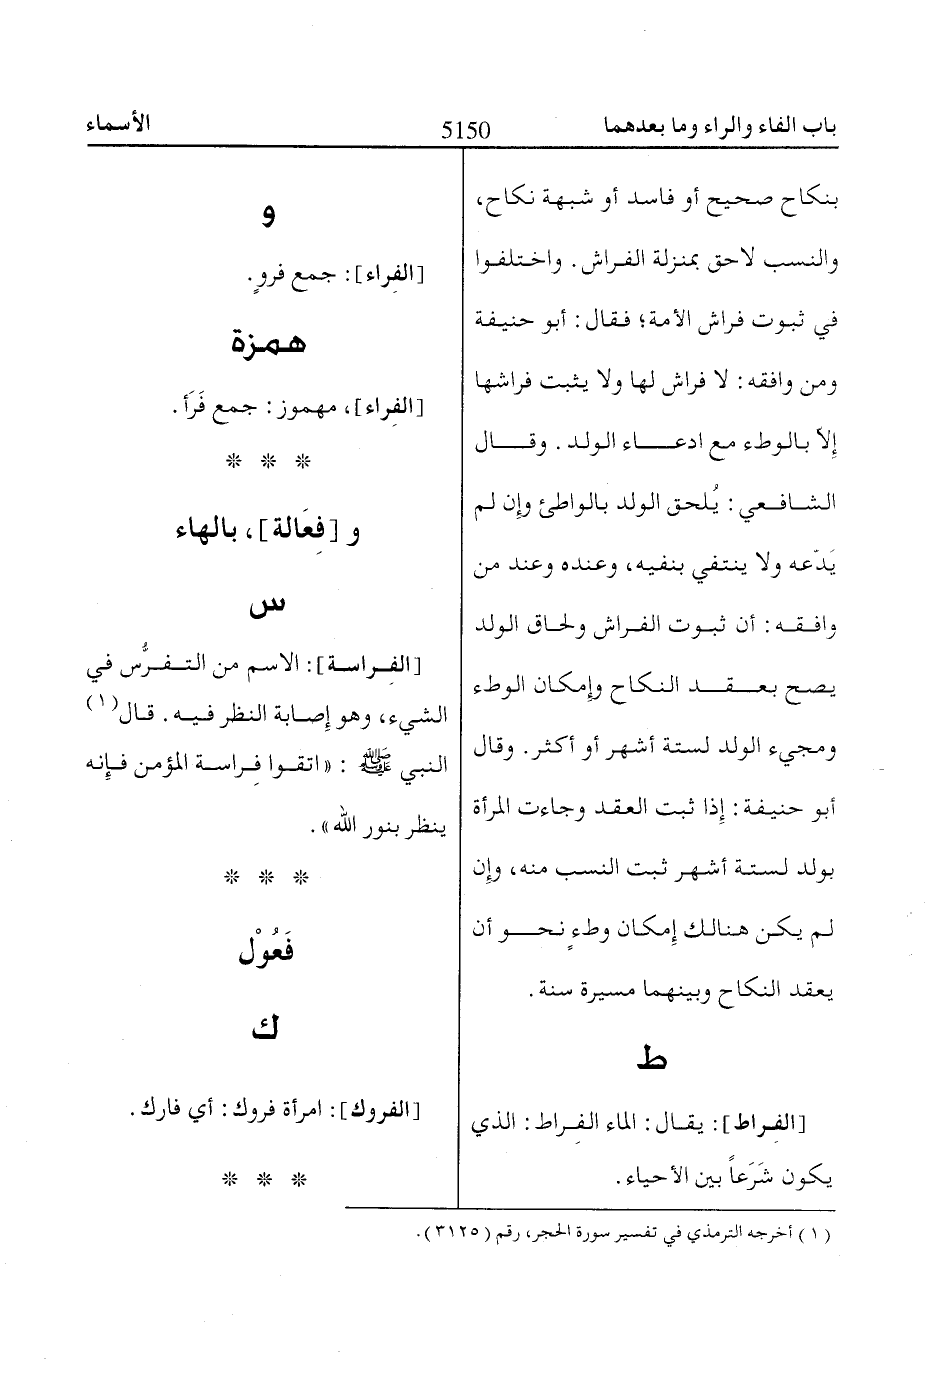 باب الفاء والراء وما بعدهما
5150
الأسماء
بنكاح صحيح أو فاسد أو شبهة نكاح،
والنسب لاحق بمنزلة الفراش. واختلفوا
في ثبوت فراش الأمة؛ فقال: أبو حنيفة
ومن وافقه: لا فراش لها ولا يثبت فراشها
إلاّ بالوطء مع ادعاء الولد. وقال
الشافعي: يُلحق الولد بالواطئ وإن لم
يَدّعه ولا ينتفي بنفيه، وعنده وعند من
وافقه: أن ثبوت الفراش ولحاق الولد
يصح بعقد النكاح وإمكان الوطء
ومجيء الولد لستة أشهر أو أكثر. وقال
أبو حنيفة: إذا ثبت العقد وجاءت المرأة
بولد لستة أشهر ثبت النسب منه، وإن
لم يكن هنالك إمكان وطءٍ نحو أن
يعقد النكاح وبينهما مسيرة سنة.
ط
[الفِراط]: يقال: الماء الفِراط: الذي
يكون شَرَعاً بين الأحياء.
و
[الفِراء]: جمع فروٍ.
همزة
[الفِراء]، مهموز: جمع فَرَأ.
* * *
و [فِعَالة]، بالهاء
س
[الفِراسة]: الاسم من التفرُّس في
الشيء، وهو إصابة النظر فيه. قال(١)
النبي ﷺ : «اتقوا فِراسة المؤمن فإنه
ينظر بنور الله».
* * *
فَعُوْل
ك
[الفروك]: امرأة فروك: أي فارك.
* * *
(١) أخرجه الترمذي في تفسير سورة الحجر، رقم (٣١٢٥).